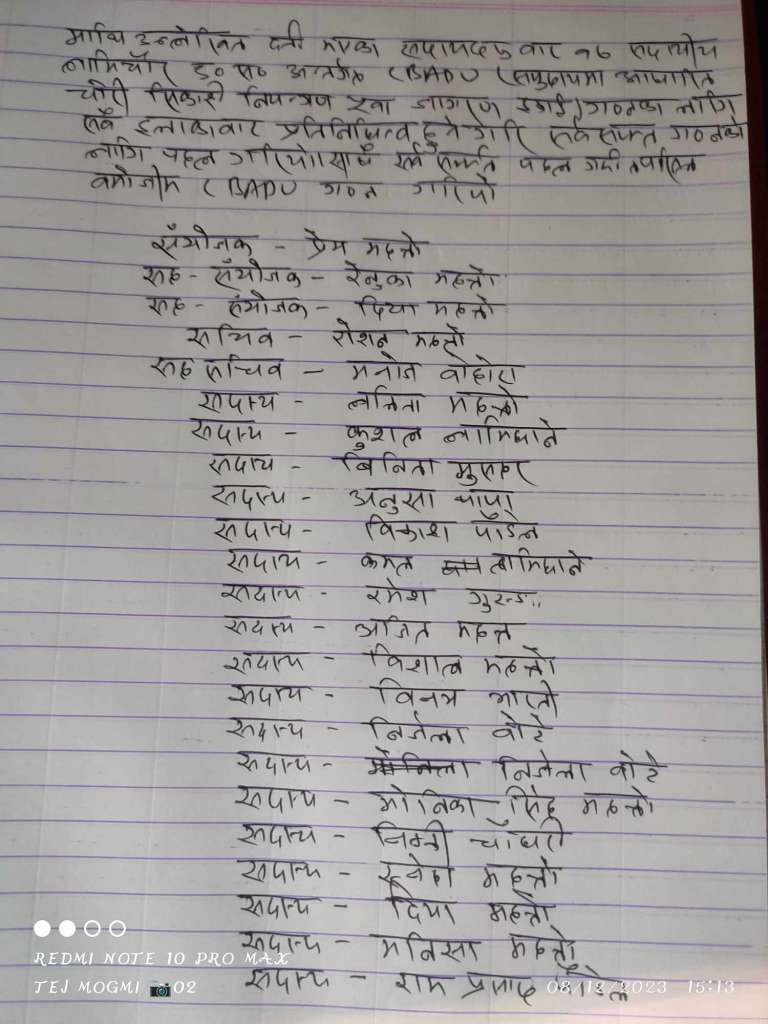 माथि उल्लेखित
अन्तर्गत (BADU (समुदायमा आधारित
चोरी सिकारी नियन्त्रण युवा जागरण इकाई) गठनका लागि
सबै इलाकावार प्रतिनिधित्व हुने गरि सर्वसम्मत गठनको
लागि पहल गरियो। साथै सर्वसम्मत पहल गर्दा
बमोजिम (BADU गठन गरियो
संयोजक - प्रेम महतो
सह - संयोजक - रेनुका महतो
सह - संयोजक - दिया महतो
सचिव - रोशन महतो
सह सचिव - मनोज बोहोरा
सदस्य - ललिता महतो
सदस्य - कुशल लामिछाने
सदस्य - बिनिता मुसहर
सदस्य - अनुसा थापा
सदस्य - विकाश पौडेल
सदस्य - कमल लामिछाने
सदस्य - रमेश गुरुङ
सदस्य - अजित महतो
सदस्य - विशाल महतो
सदस्य - विनय
सदस्य - निर्जला बोटे
सदस्य - निर्जला बोटे
सदस्य - मोनिका सिंह महतो
सदस्य - चौधरी
सदस्य - महतो
सदस्य - दिया महतो
सदस्य - मनिसा महतो
सदस्य - राम प्रसाद पौडेल
REDMI NOTE 10 PRO MAX
TEJ MOGMI 02 08/12/2023 15:13